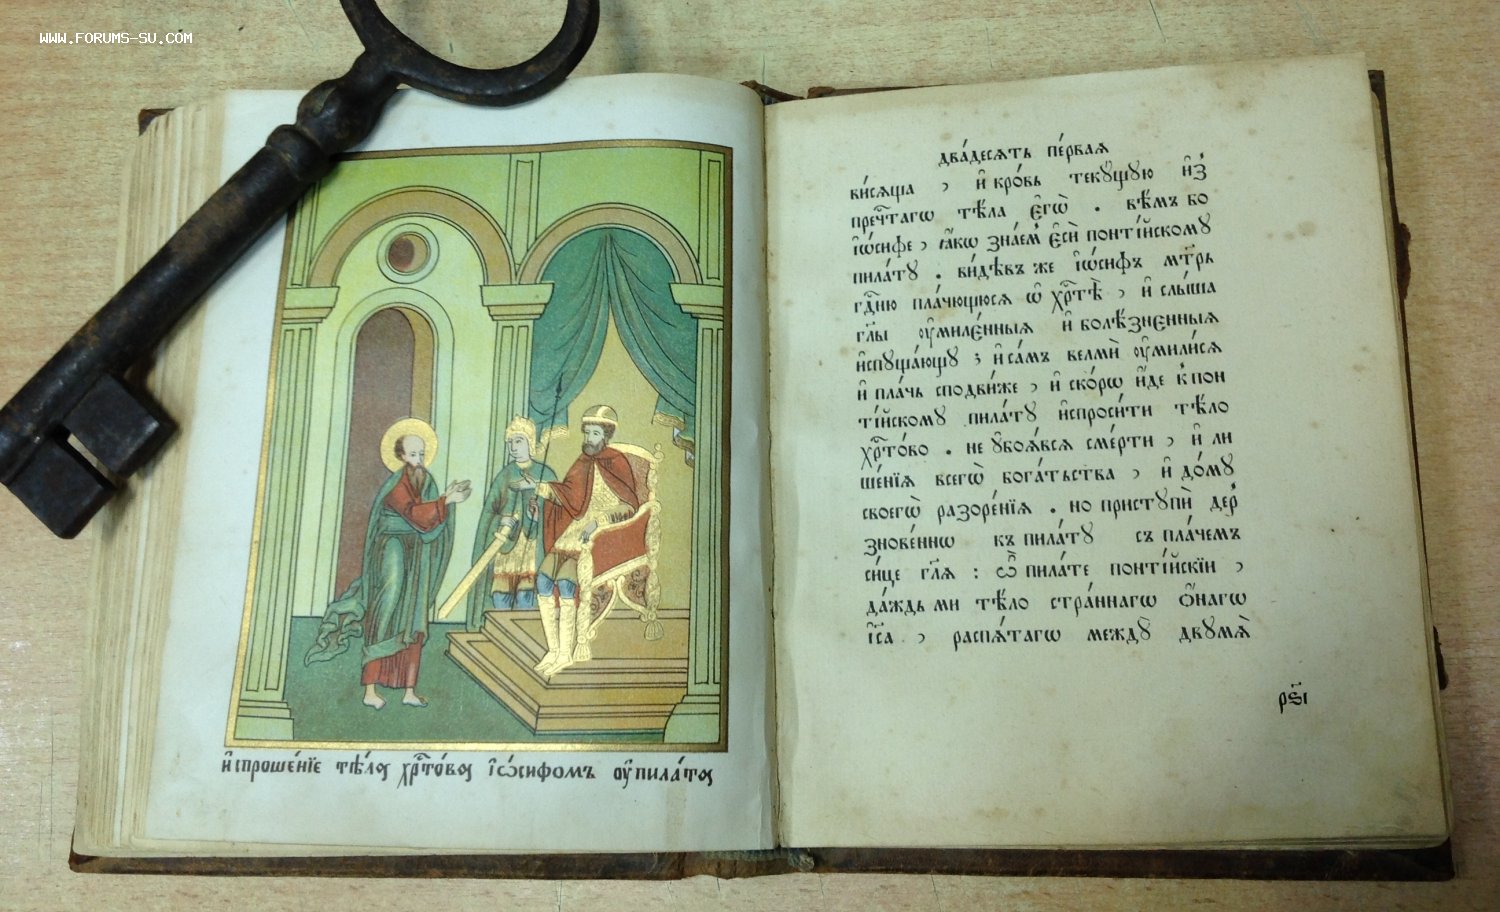 WWW.FORUMS-SU.COM
и҆спроше́нїе тѣ́лоѹ хрⷭ҇то́воѹ і҆ѡ́сифомъ оу҆пила́тоѹ
два́десѧть пе́рваѧ
ви́сѧща , и҆ кро́вь текꙋ́щꙋю и҆з̾
пречⷭ҇тагѡ тѣ́ла є҆гѡ̀ . вѣ́мъ бо
і҆ѡ́сифе , ꙗ҆́кѡ зна́ем̾ є҆сѝ понті́йскомꙋ
пила́тꙋ . ви́дѣвъ же і҆ѡ́сифъ мт҃рь
гдⷭ҇ню пла́чющюсѧ ѡ҆ хрⷭ҇тѣ̀ , и҆ слы́ша
гл҃ы оу҆миле́нныѧ и҆ болѣ́зненныѧ
и҆спꙋща́ющꙋ ; и҆ са́мъ велмѝ оу҆мили́сѧ
и҆ пла́чь сподви́же , и҆ ско́рѡ и҆́де к̾ пон
ті́йскомꙋ пила́тꙋ и҆спроси́ти тѣ́ло
хрⷭ҇то́во . не ᲂу҆боѧ́всѧ сме́рти , и҆ ли
ше́нїѧ всегѡ̀ бога́тьства , и҆ до́мꙋ
своегѡ̀ разоре́нїѧ . но пристꙋпѝ дер̾
знове́ннѡ къ пила́тꙋ съ пла́чемъ
си́це гл҃ѧ : ѽ пила́те понті́йскїи ,
да́ждь ми тѣ́ло стра́ннагѡ ѻ҆́нагѡ
і҆с҃а , распѧ́тагѡ междꙋ̀ двꙋмѧ̀
рѕ҃і